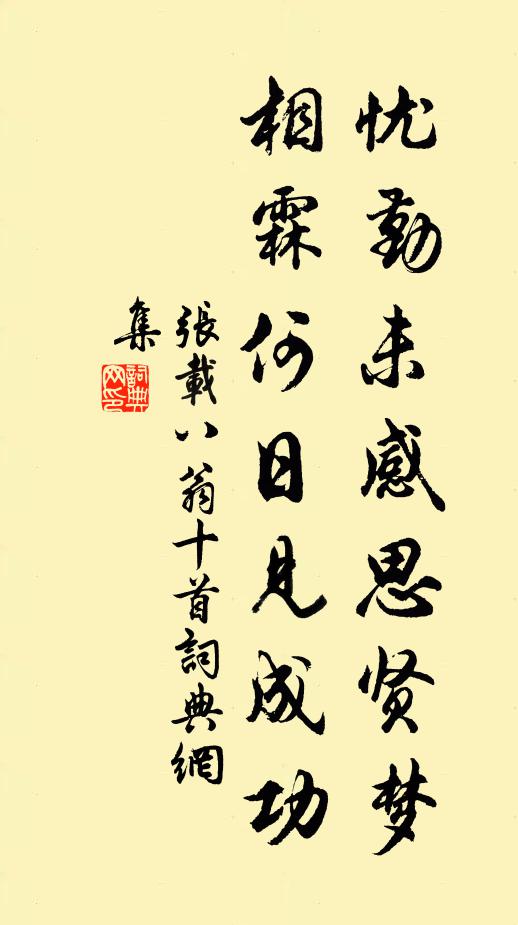 忧勤未感思贤梦
相霖何日见成功
張載八翁十首詞典網
集
詞典网印